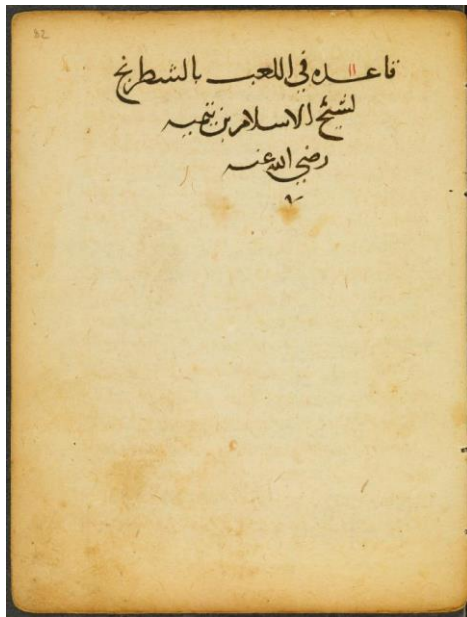 32
قاعده في اللعب بالشطرنج
لشيخ الاسلام بن تيميه
رضي الله عنه